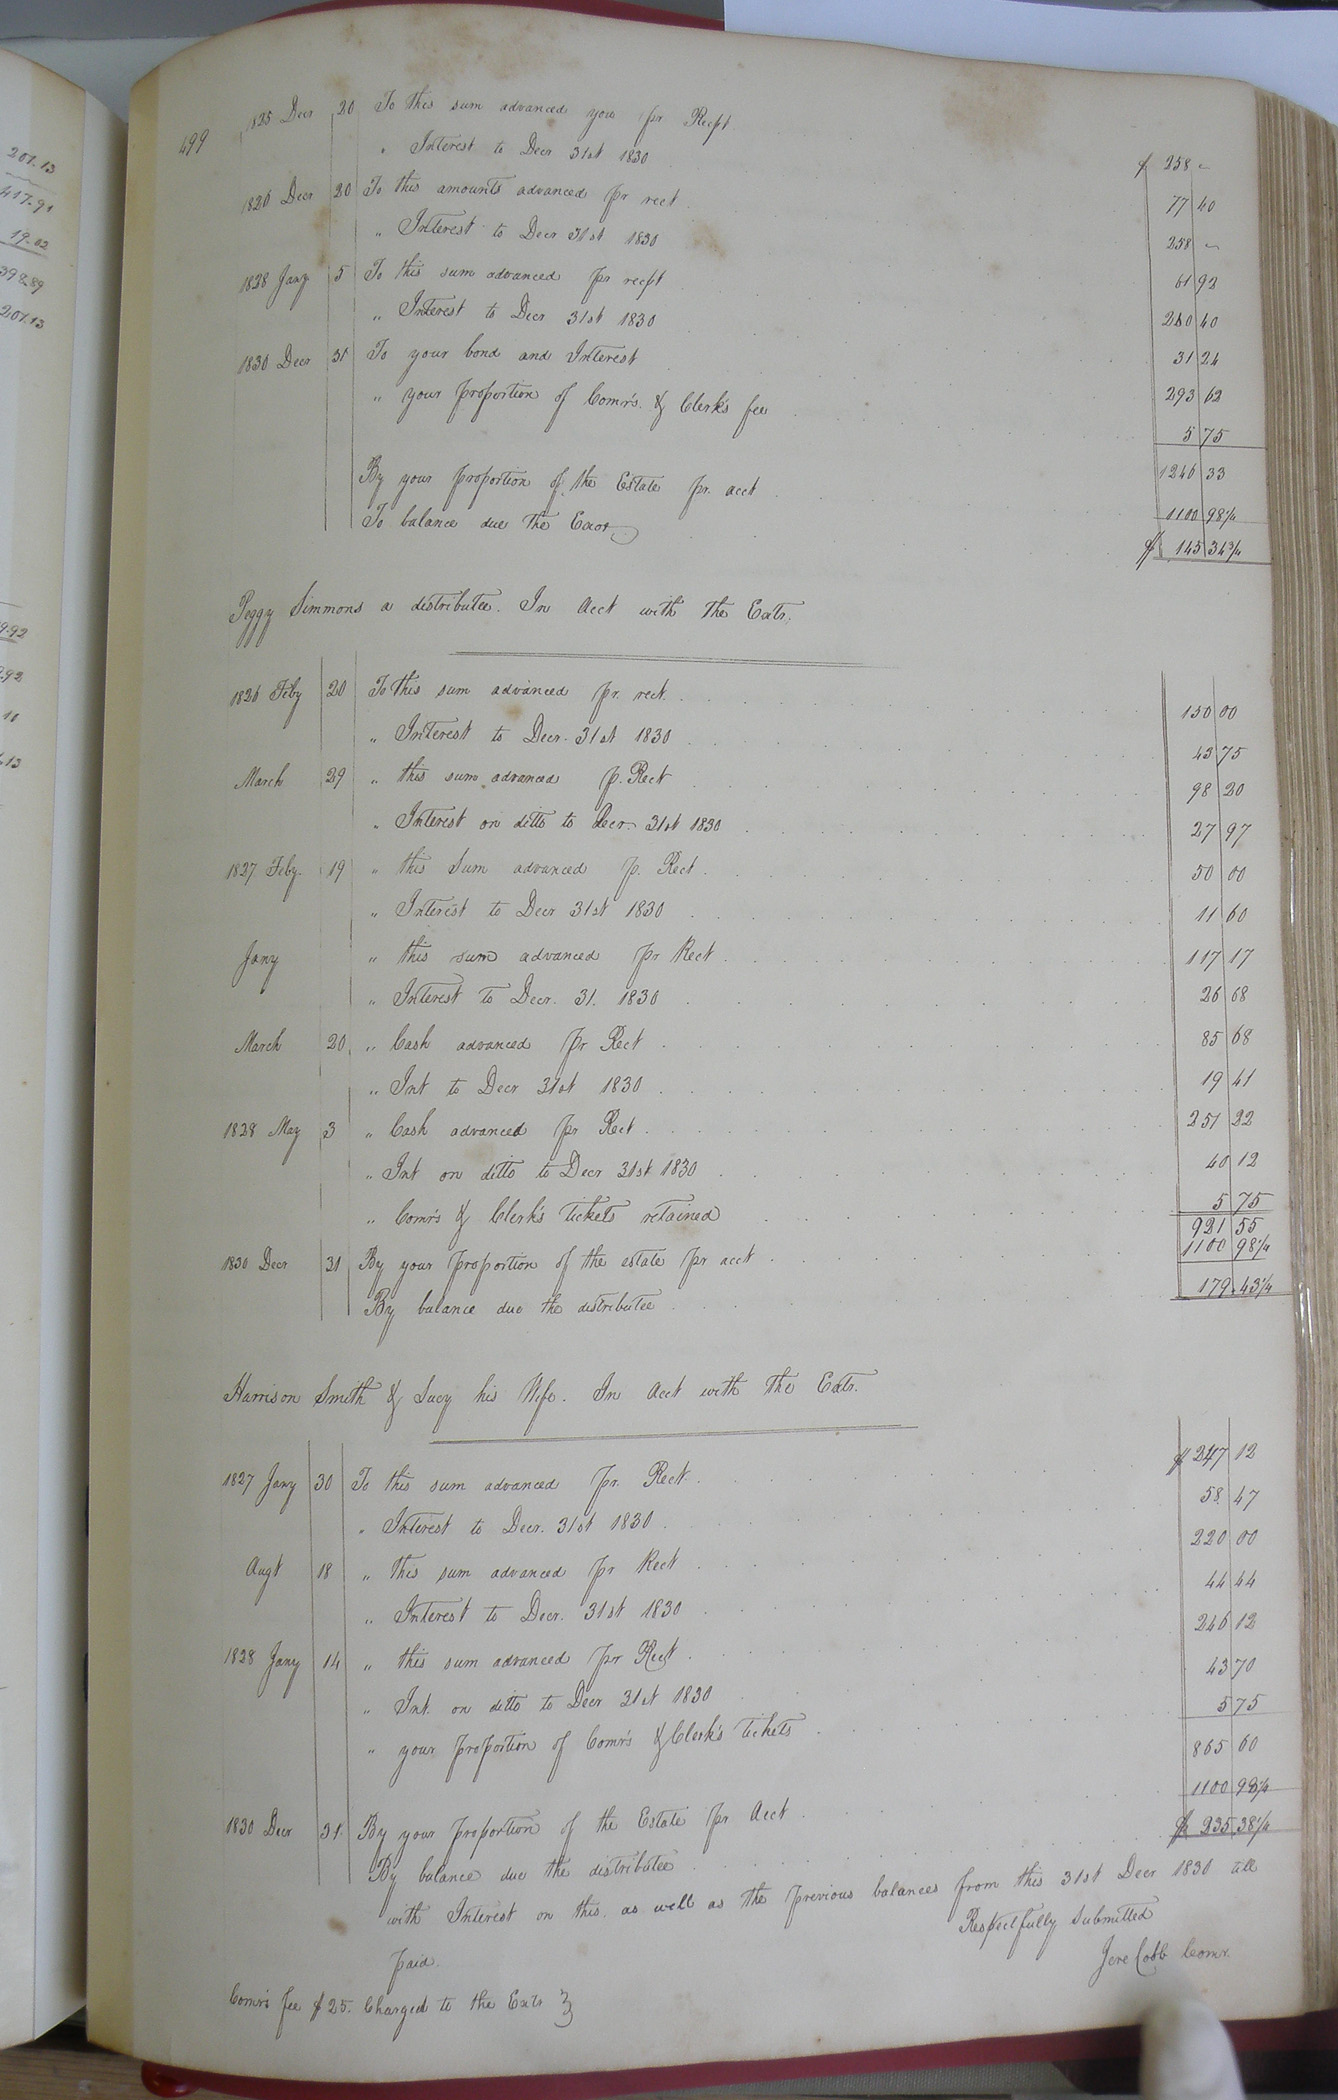 499
1825 Decr 20 To this sum advanced you pr Recpt $ 258 "
" Interest to Decr 31st 1830 77 40
1826 Decr 20 To this amounts advanced pr rect 258 "
" Interest to Decr 31st 1830 61 92
1828 Jany 5 To this sum advanced pr recpt 260 40
" Interest to Decr 31st 1830 31 24
1830 Decr 31 To your bond and Interest 293 62
" your proportion of Comr's. & Clerk's fee 5 75
1246 33
By your proportion of the Estate pr. acct 1100 98 1/4
To balance due the Exor $ 145 34 3/4
Peggy Simmons a distributee. In Acct with the Exts.
1826 Feby 20 To this sum advanced pr. rect. 150 00
" Interest to Decr. 31st 1830 43 75
March 29 " this sum advanced p. Rect 98 20
" Interest on ditto to Decr. 31st 1830 27 97
1827 Feby. 19 " this Sum advanced p. Rect. 50 00
" Interest to Decr 31st 1830 11 60
Jany " this sum advanced pr Rect. 117 17
" Interest to Decr. 31. 1830 26 68
March 20 " Cash advanced pr Rect 85 68
" Int to Decr 31st 1830 19 41
1828 May 3 " Cash advanced pr Rect. 251 22
" Int on ditto to Decr 31st 1830 40 12
" Comr's & Clerk's tickets retained 5 75
921 55
1830 Decr 31 By your proportion of the estate pr acct 1100 98 1/4
By balance due the distributee 179.43 1/4
Harrison Smith & Lucy his Wife. In Acct with the Exts.
1827 Jany 30 To this sum advanced pr. Rect. $ 247 12
" Interest to Decr. 31st 1830. 58 47
Augt 18 " this sum advanced pr Rect 220 00
" Interest to Decr. 31st 1830 44 44
1828 Jany 14 " this sum advanced pr Rect. 246 12
" Int. on ditto to Decr 31st 1830 43 70
" your proportion of Comr's & Clerk's tickets 5 75
865 60
1830 Decr 31. By your proportion of the Estate pr Acct 1100 98 1/4
By balance due the distributee $ 235.38 1/4
with Interest on this. as well as the previous balances from this 31st Decr 1830 till
paid.
Respectfully Submitted
Jere Cobb Comr.
Comr's fee $25. Charged to the Exts }